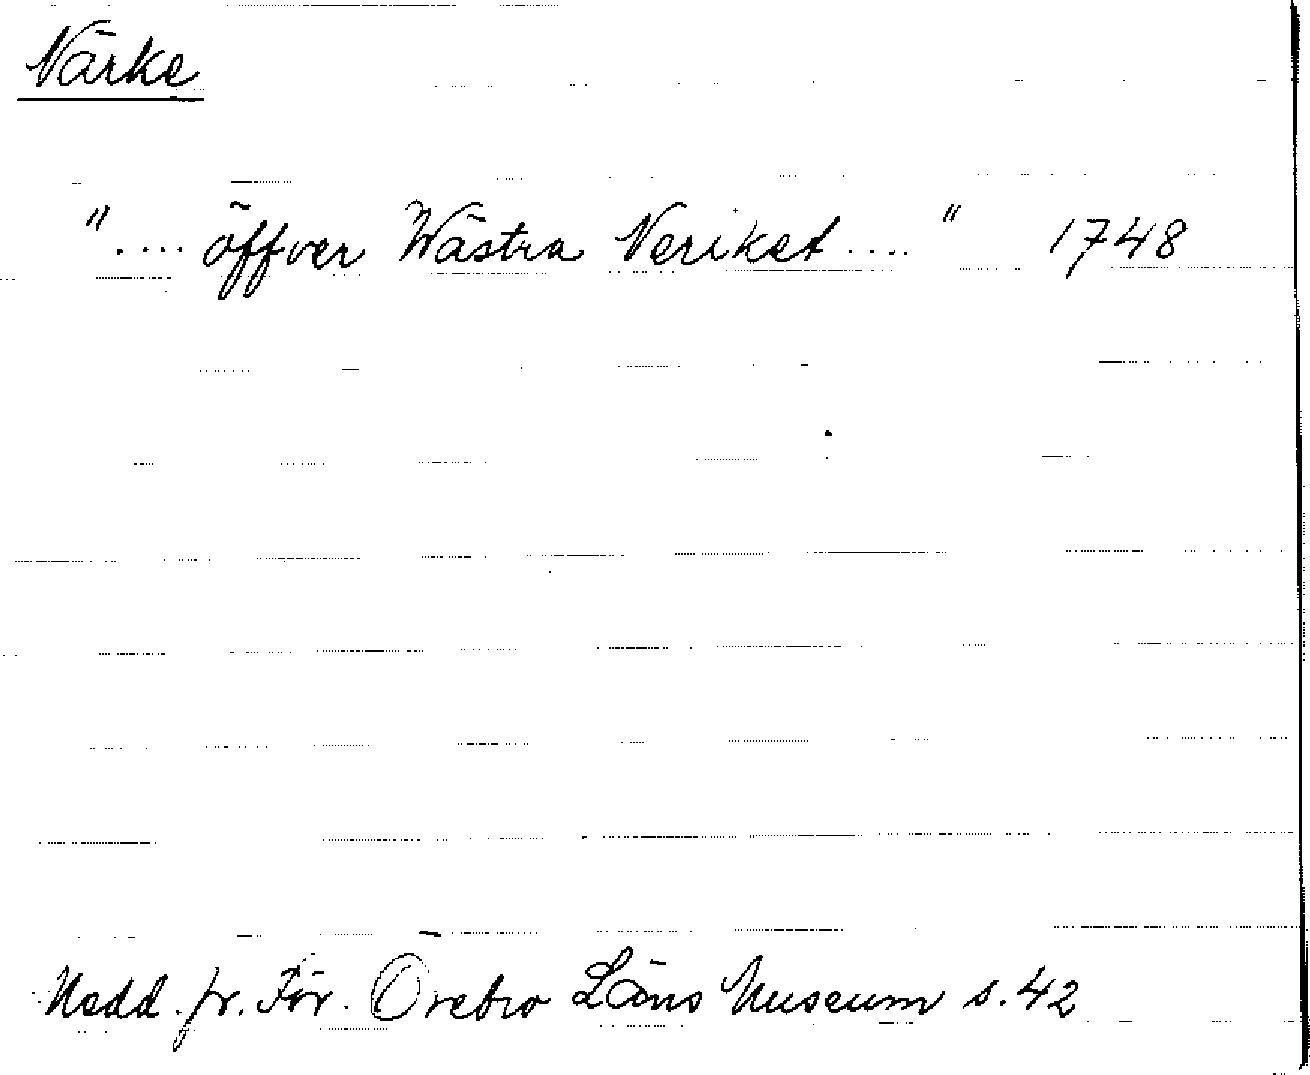 Närke
".... öffver Wästra Neriket ...." 1748
Medd. fr. För. Örebro Läns Museum s. 42